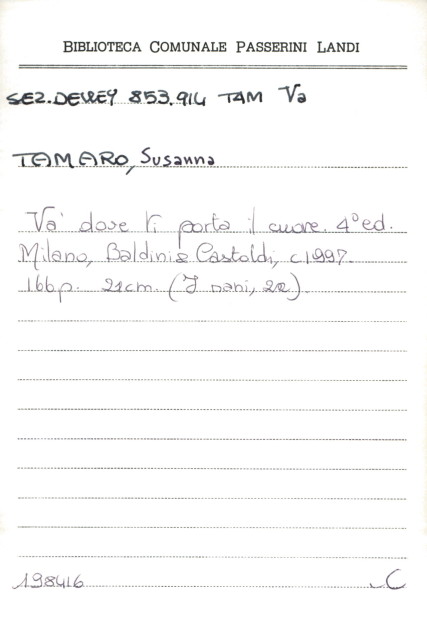 BIBLIOTECA COMUNALE PASSERINI LANDI
SEZ. DEWEY 853.914 TAM Va
TAMARO, Susanna
Va' dove ti porta il cuore. 4° ed.
Milano, Baldini & Castoldi, c1997.
166 p. 21 cm. (I nani, 22).
198416
C